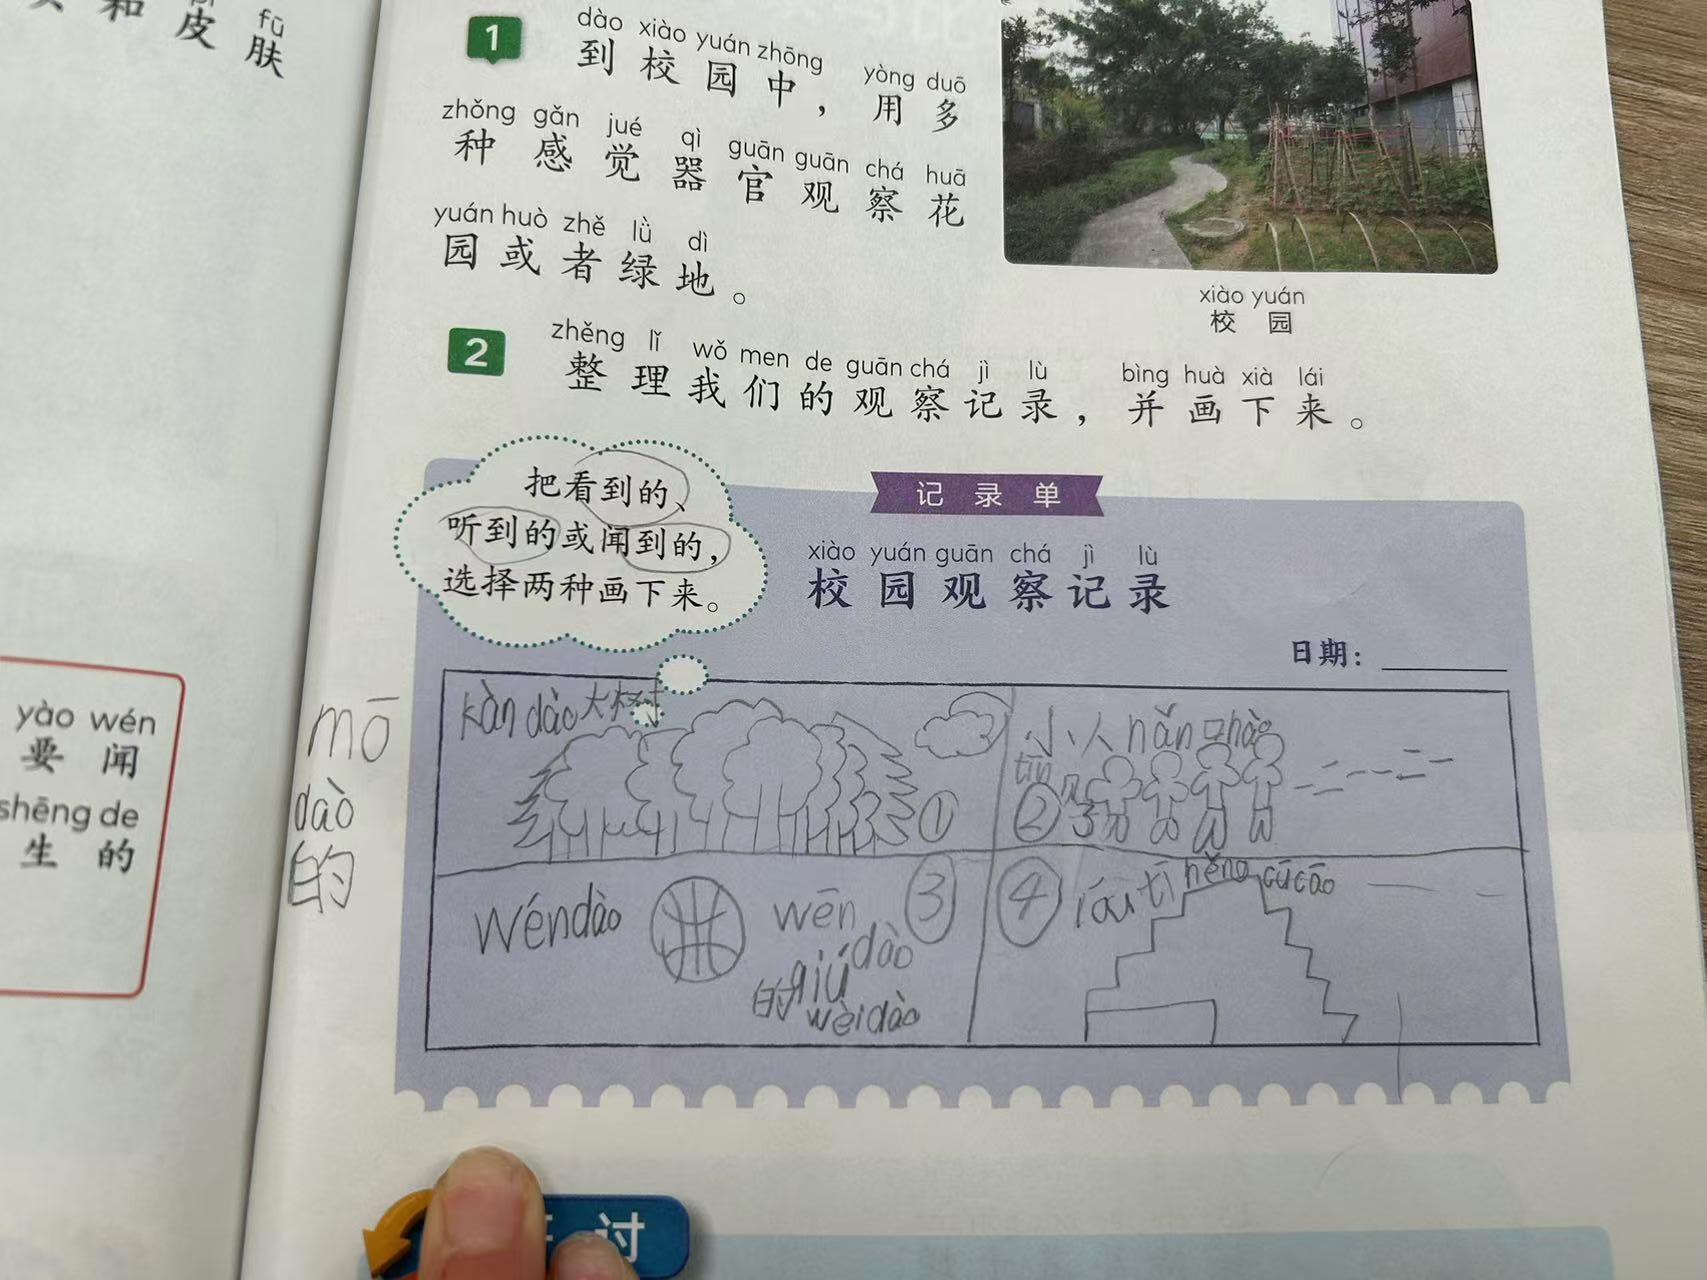 和 皮 肤
fū
1
dào xiào yuán zhōng yòng duō
到校园中，用多
zhǒng gǎn jué qì guān guān chá huā
种感觉器官观察花
yuán huò zhě lǜ dì
园或者绿地。
xiào yuán
校园
2
zhěng lǐ wǒ men de guān chá jì lù bìng huà xià lái
整理我们的观察记录，并画下来。
把看到的、
听到的或闻到的，
选择两种画下来。
记录单
xiào yuán guān chá jì lù
校园观察记录
日期：
yào wén
要闻
shēng de
生的
mō
dào
的
kàn dào大树
①
小人nǎn
②
wéndào
wēn
dào
③
的qiú
wèidào
④
něng cūcāo
讨